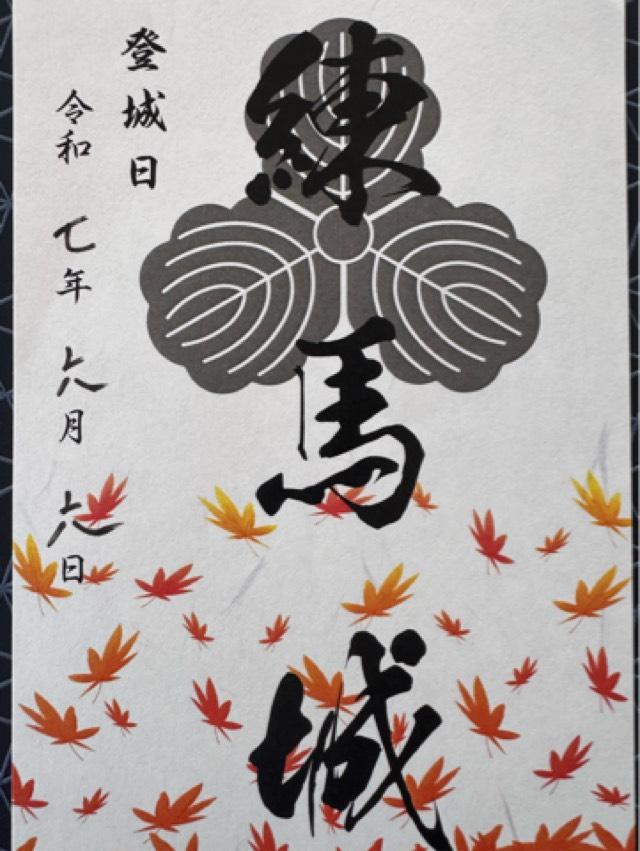 練馬城
登城日
令和七年六月六日